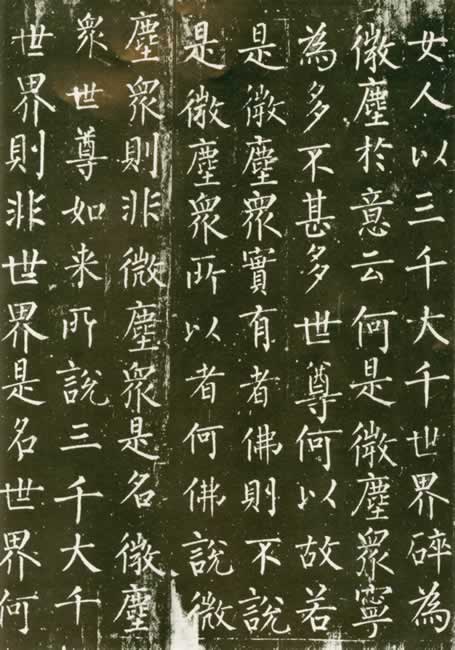 女人以三千大千世界碎為
微塵於意云何是微塵衆寧
為多不甚多世尊何以故若
是微塵衆實有者佛則不説
是微塵衆所以者何佛説微
塵衆則非微塵衆是名微塵
衆世尊如来所説三千大千
世界則非世界是名世界何